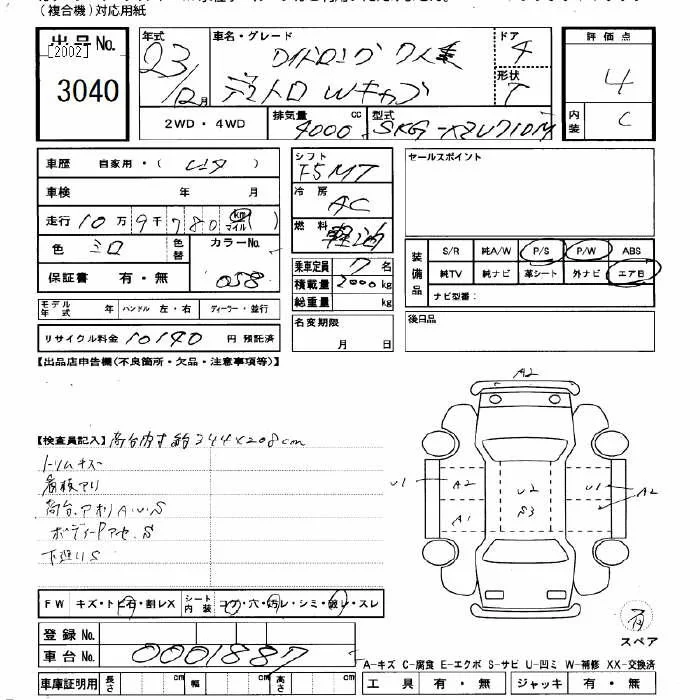 (複合機)対応用紙
出品No.
[2002]
3040
年式
23/12月
車名・グレード
ワイドロング 7人乗
デュトロ Wキャブ
ドア
4
形状
T
評価点
4
内装
C
2WD・4WD
排気量
4000cc
型式
SKG-XZU710M
車歴 自家用・( レンタ )
車検 年 月
走行 10万9千780 km マイル
色 シロ 色替 カラーNo. 058
保証書 有・無
モデル年式 年 ハンドル 左・右 ディーラー・並行
リサイクル料金 10190 円 預託済
シフト
F5MT
冷房
AC
燃料
軽油
乗車定員 7名
積載量 2000kg
総重量 kg
名変期限
月 日
セールスポイント
装備品
S/R 純A/W P/S P/W ABS
純TV 純ナビ 革シート 外ナビ エアB
ナビ型番:
後日品
【出品店申告欄(不良箇所・欠品・注意事項等)】
【検査員記入】荷台内寸約344×208cm
トリムキズ
看板アリ
荷台、アオリA.U.S
ボディー下アセ.S
下廻りS
A2
U1
A2
A1
U2
S3
U1
A2
FW キズ・トビ石・割レX シート内装 コゲ・穴・汚レ・シミ・破レ・スレ
登録No.
車台No. 0001887
車庫証明用 長さ cm 幅 cm 高さ cm
有
スペア
A-キズ C-腐食 E-エクボ S-サビ U-凹ミ W-補修 XX-交換済
工具 有・無 ジャッキ 有・無